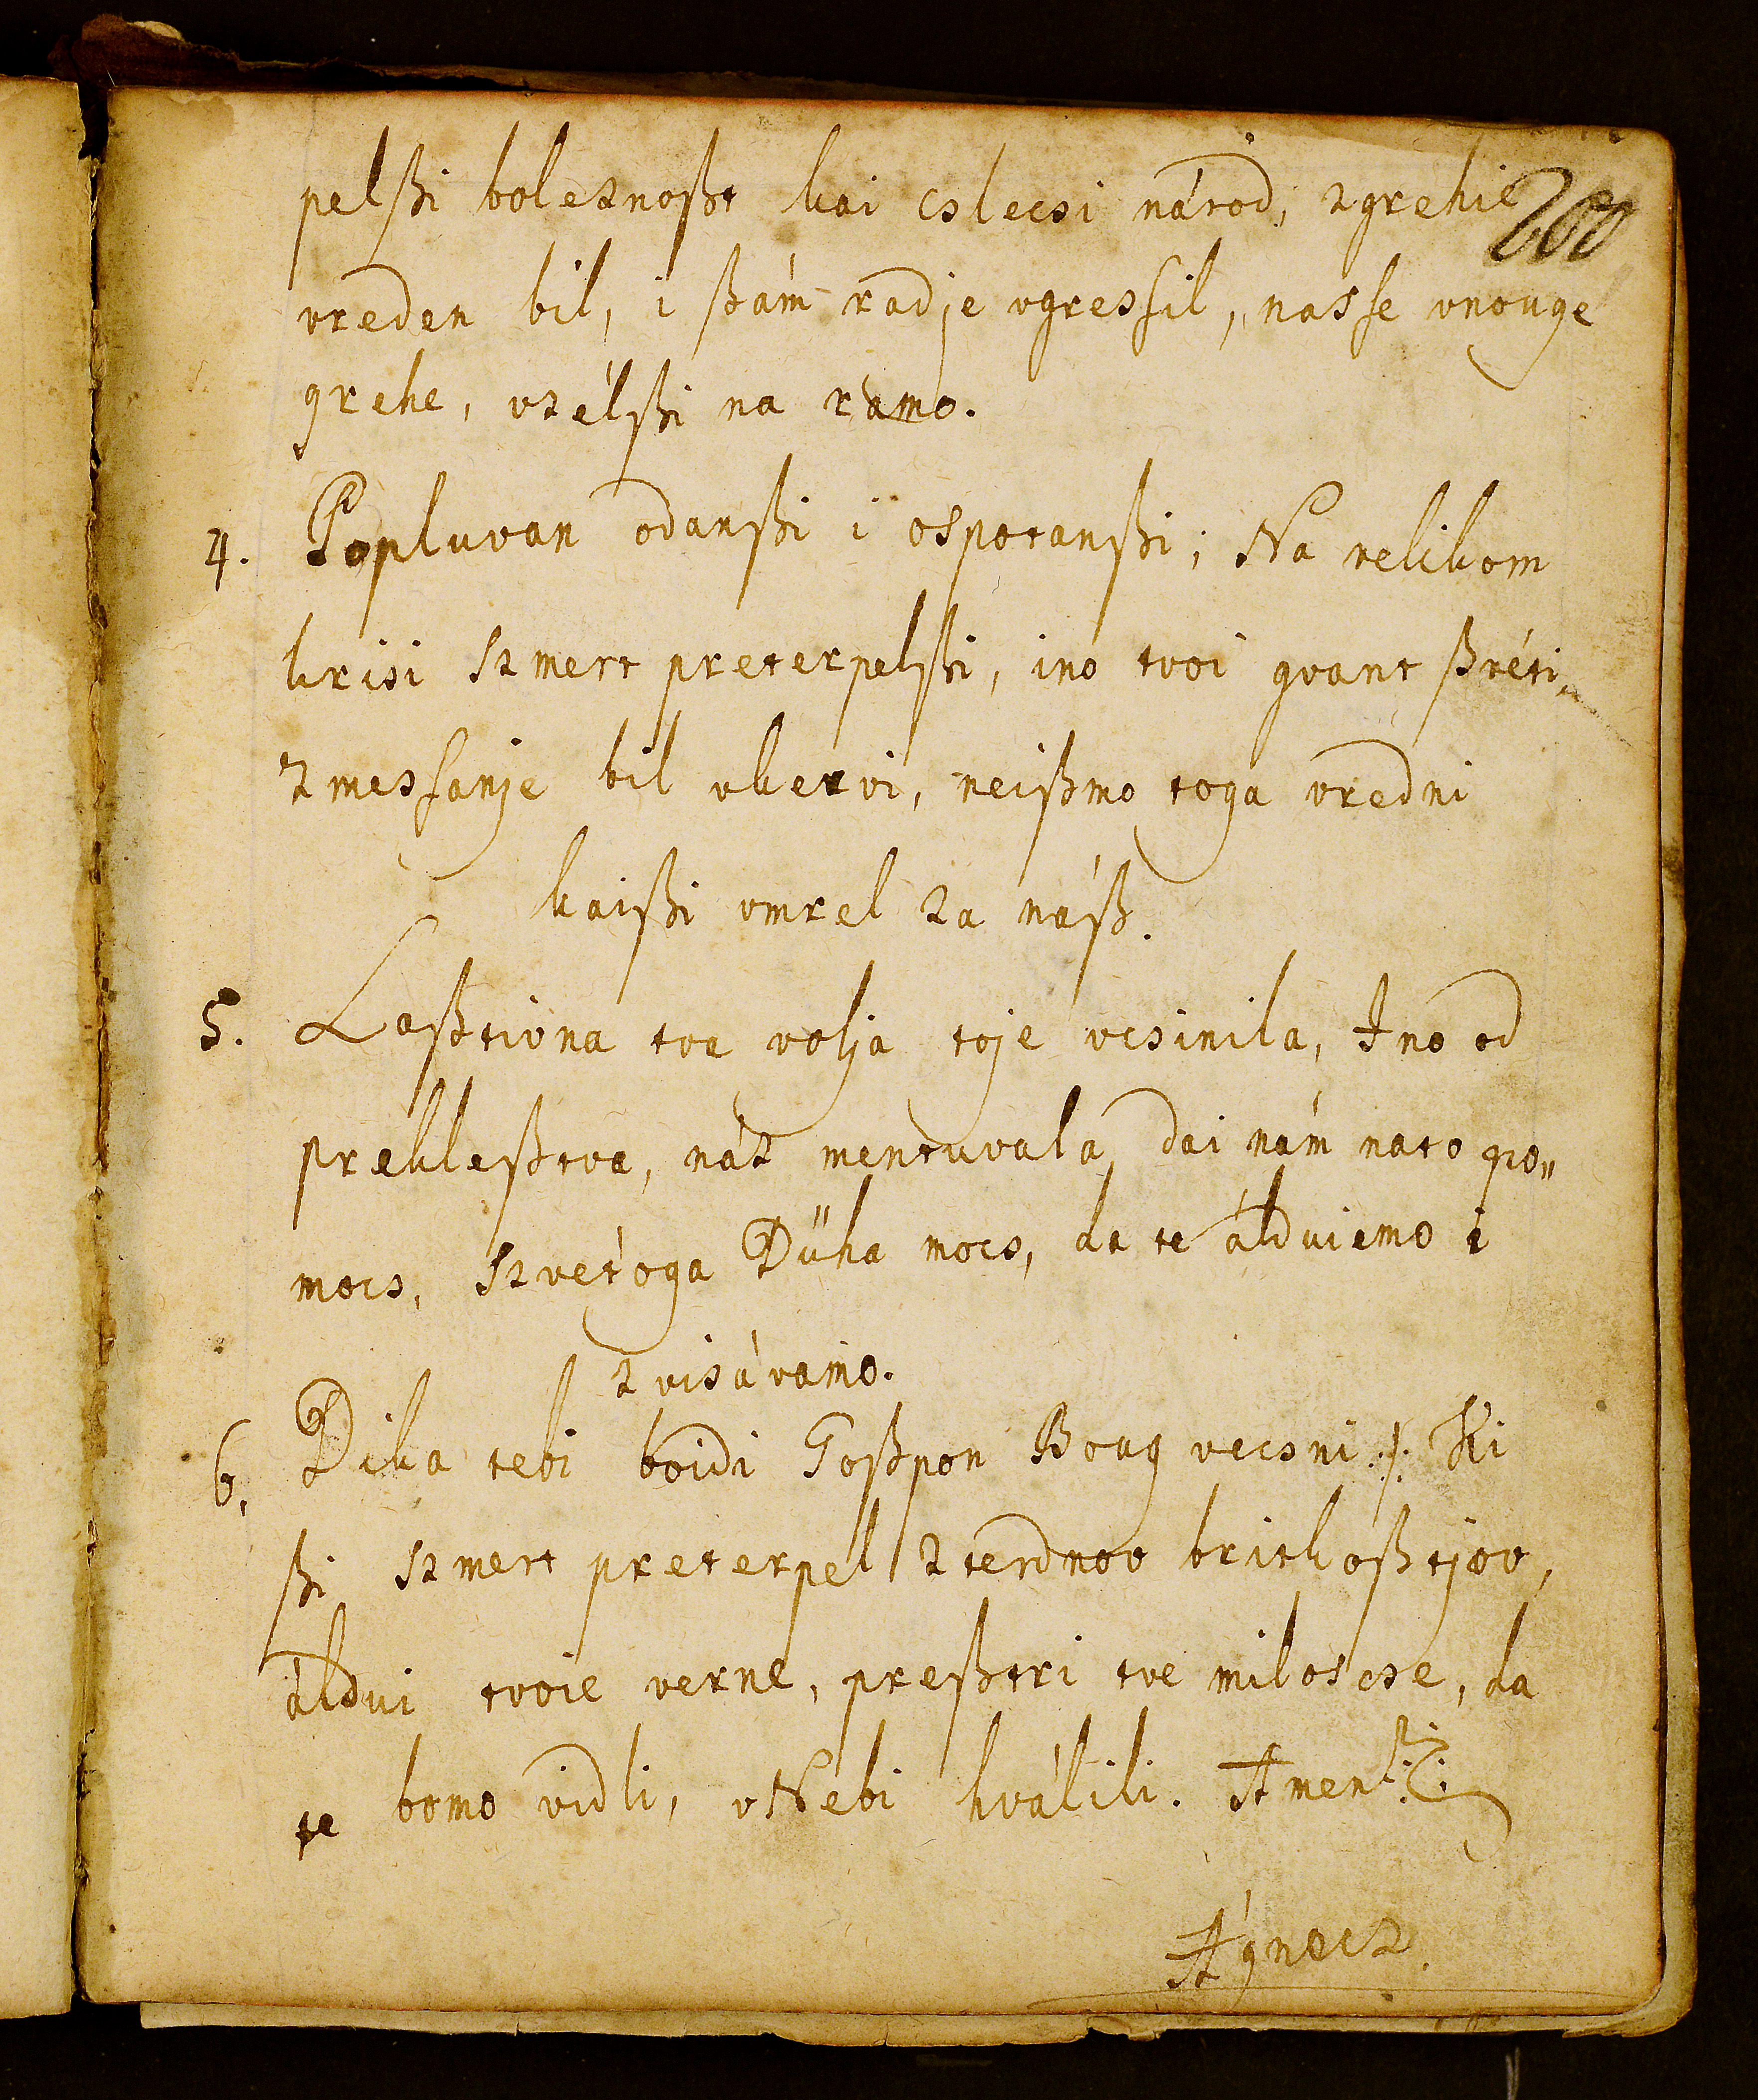 200
pelßi boleznoßt kai cslecsi národ, zgrehie
vreden bil, i ßám radje vgressil, nasse vnouge
grehe, vzélßi na ramo.
4. Popluvan odanßi i ospotanßi; Na velikom
krisi szmert preterpelßi, ino tvoi gvant ßvéti„
zmessanje bil vkervi, neißmo toga vredni
kaißi vmrel za náß.
5. Laßtivna tva volja toje vcsinila, Ino od
prekleßtva, náz mentuvala, dai nám nato po„
mocs, szvétoga Dűha mocs, da te álduiemo i
zvisávamo.
6. Dika tebi boidi Goßpon Boug vecsni ./. Ki
ßi szmert preterpel zterdnov britkoßtjov,
áldui tvoie verne, preßtri tve miloscse, da
te bomo vidli, vNebi hválili. Amen
Ágnecz.